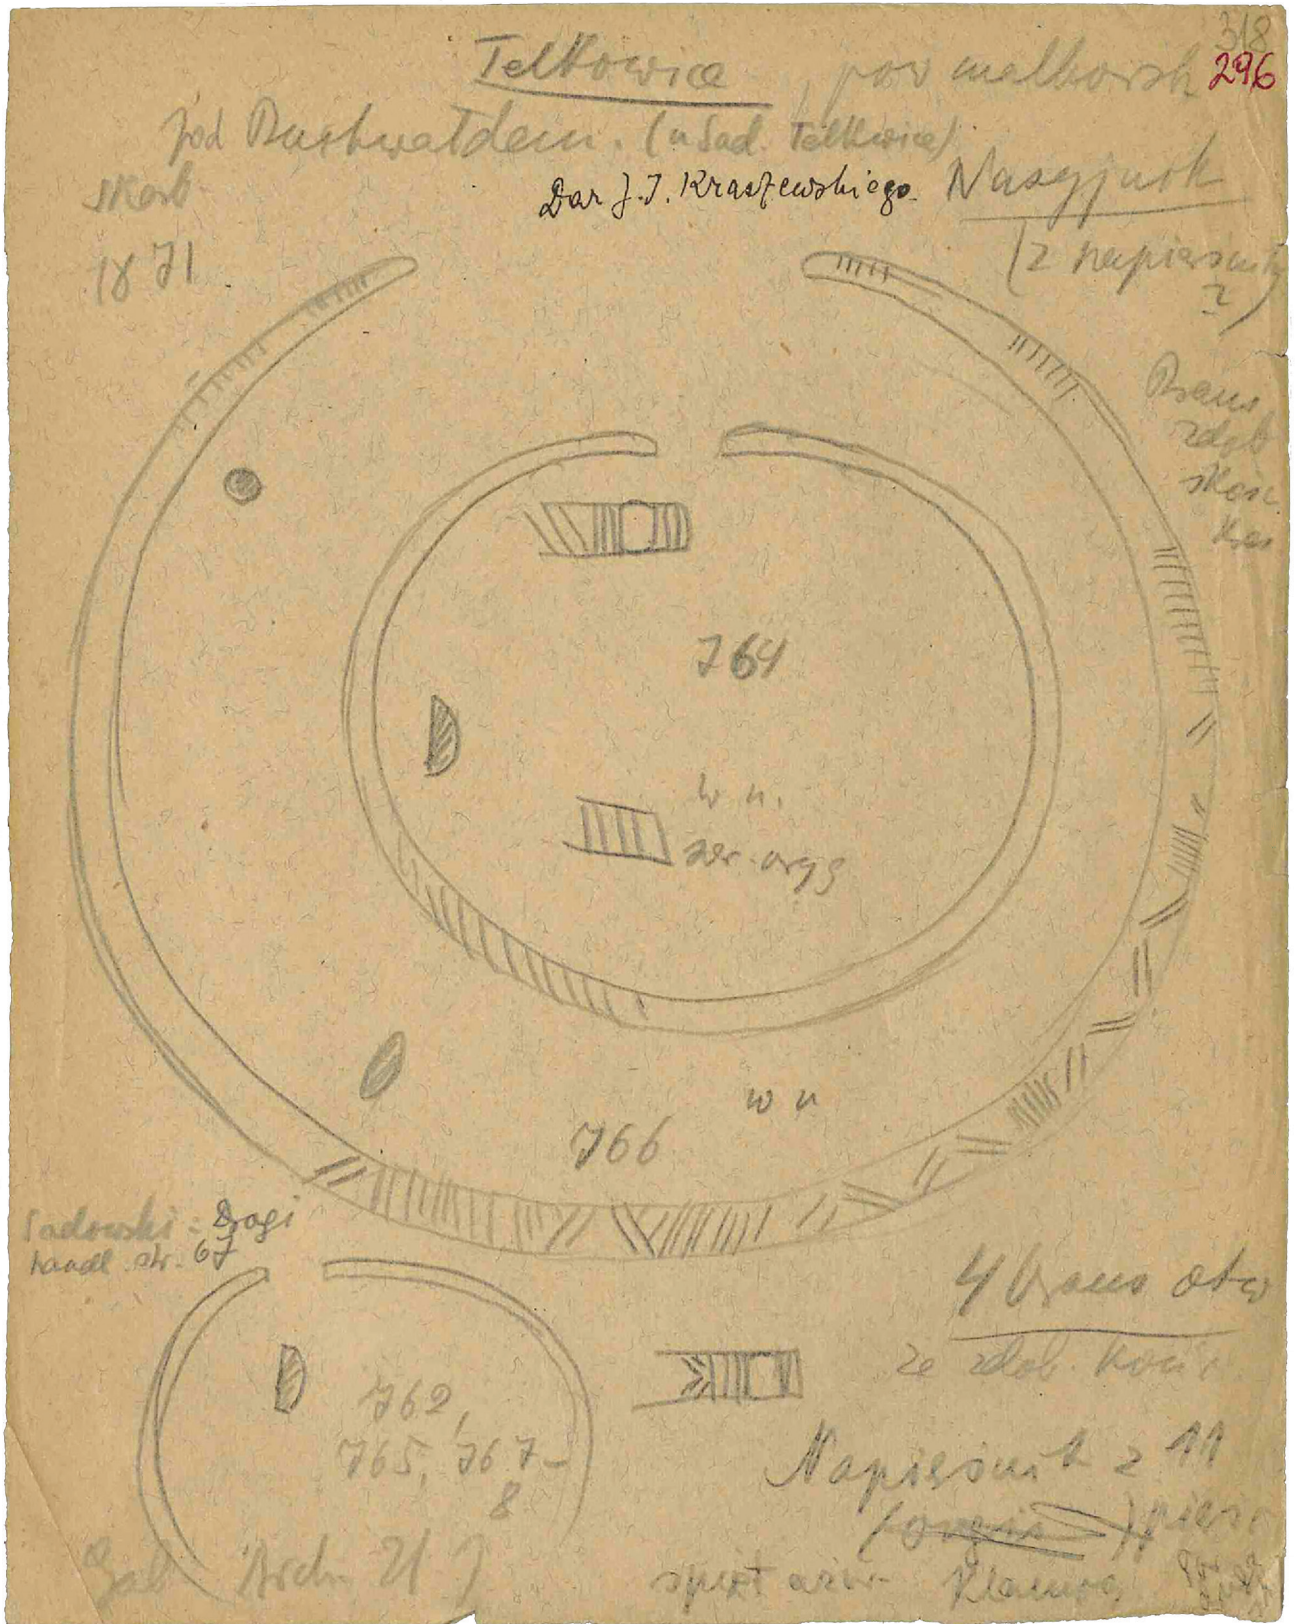 318
296
Telkowice, pow malborsk
pod Buchwałdem. (u Sad. Telkwice)
Skarb
1871
Dar J. I. Kraszewskiego.
Naszyjnik
(z napierśnika
?)
Brans
zdob
skośn
kres
764
w n.
szer. oryg
w n
766
Sadowski: Drogi
handl. str. 67
762,
765, 767-
8
4 brans otw
ze zdob. końc
Napierśnik z 11
pierśc
spięt ażur klamrą
Gab Arch UJ